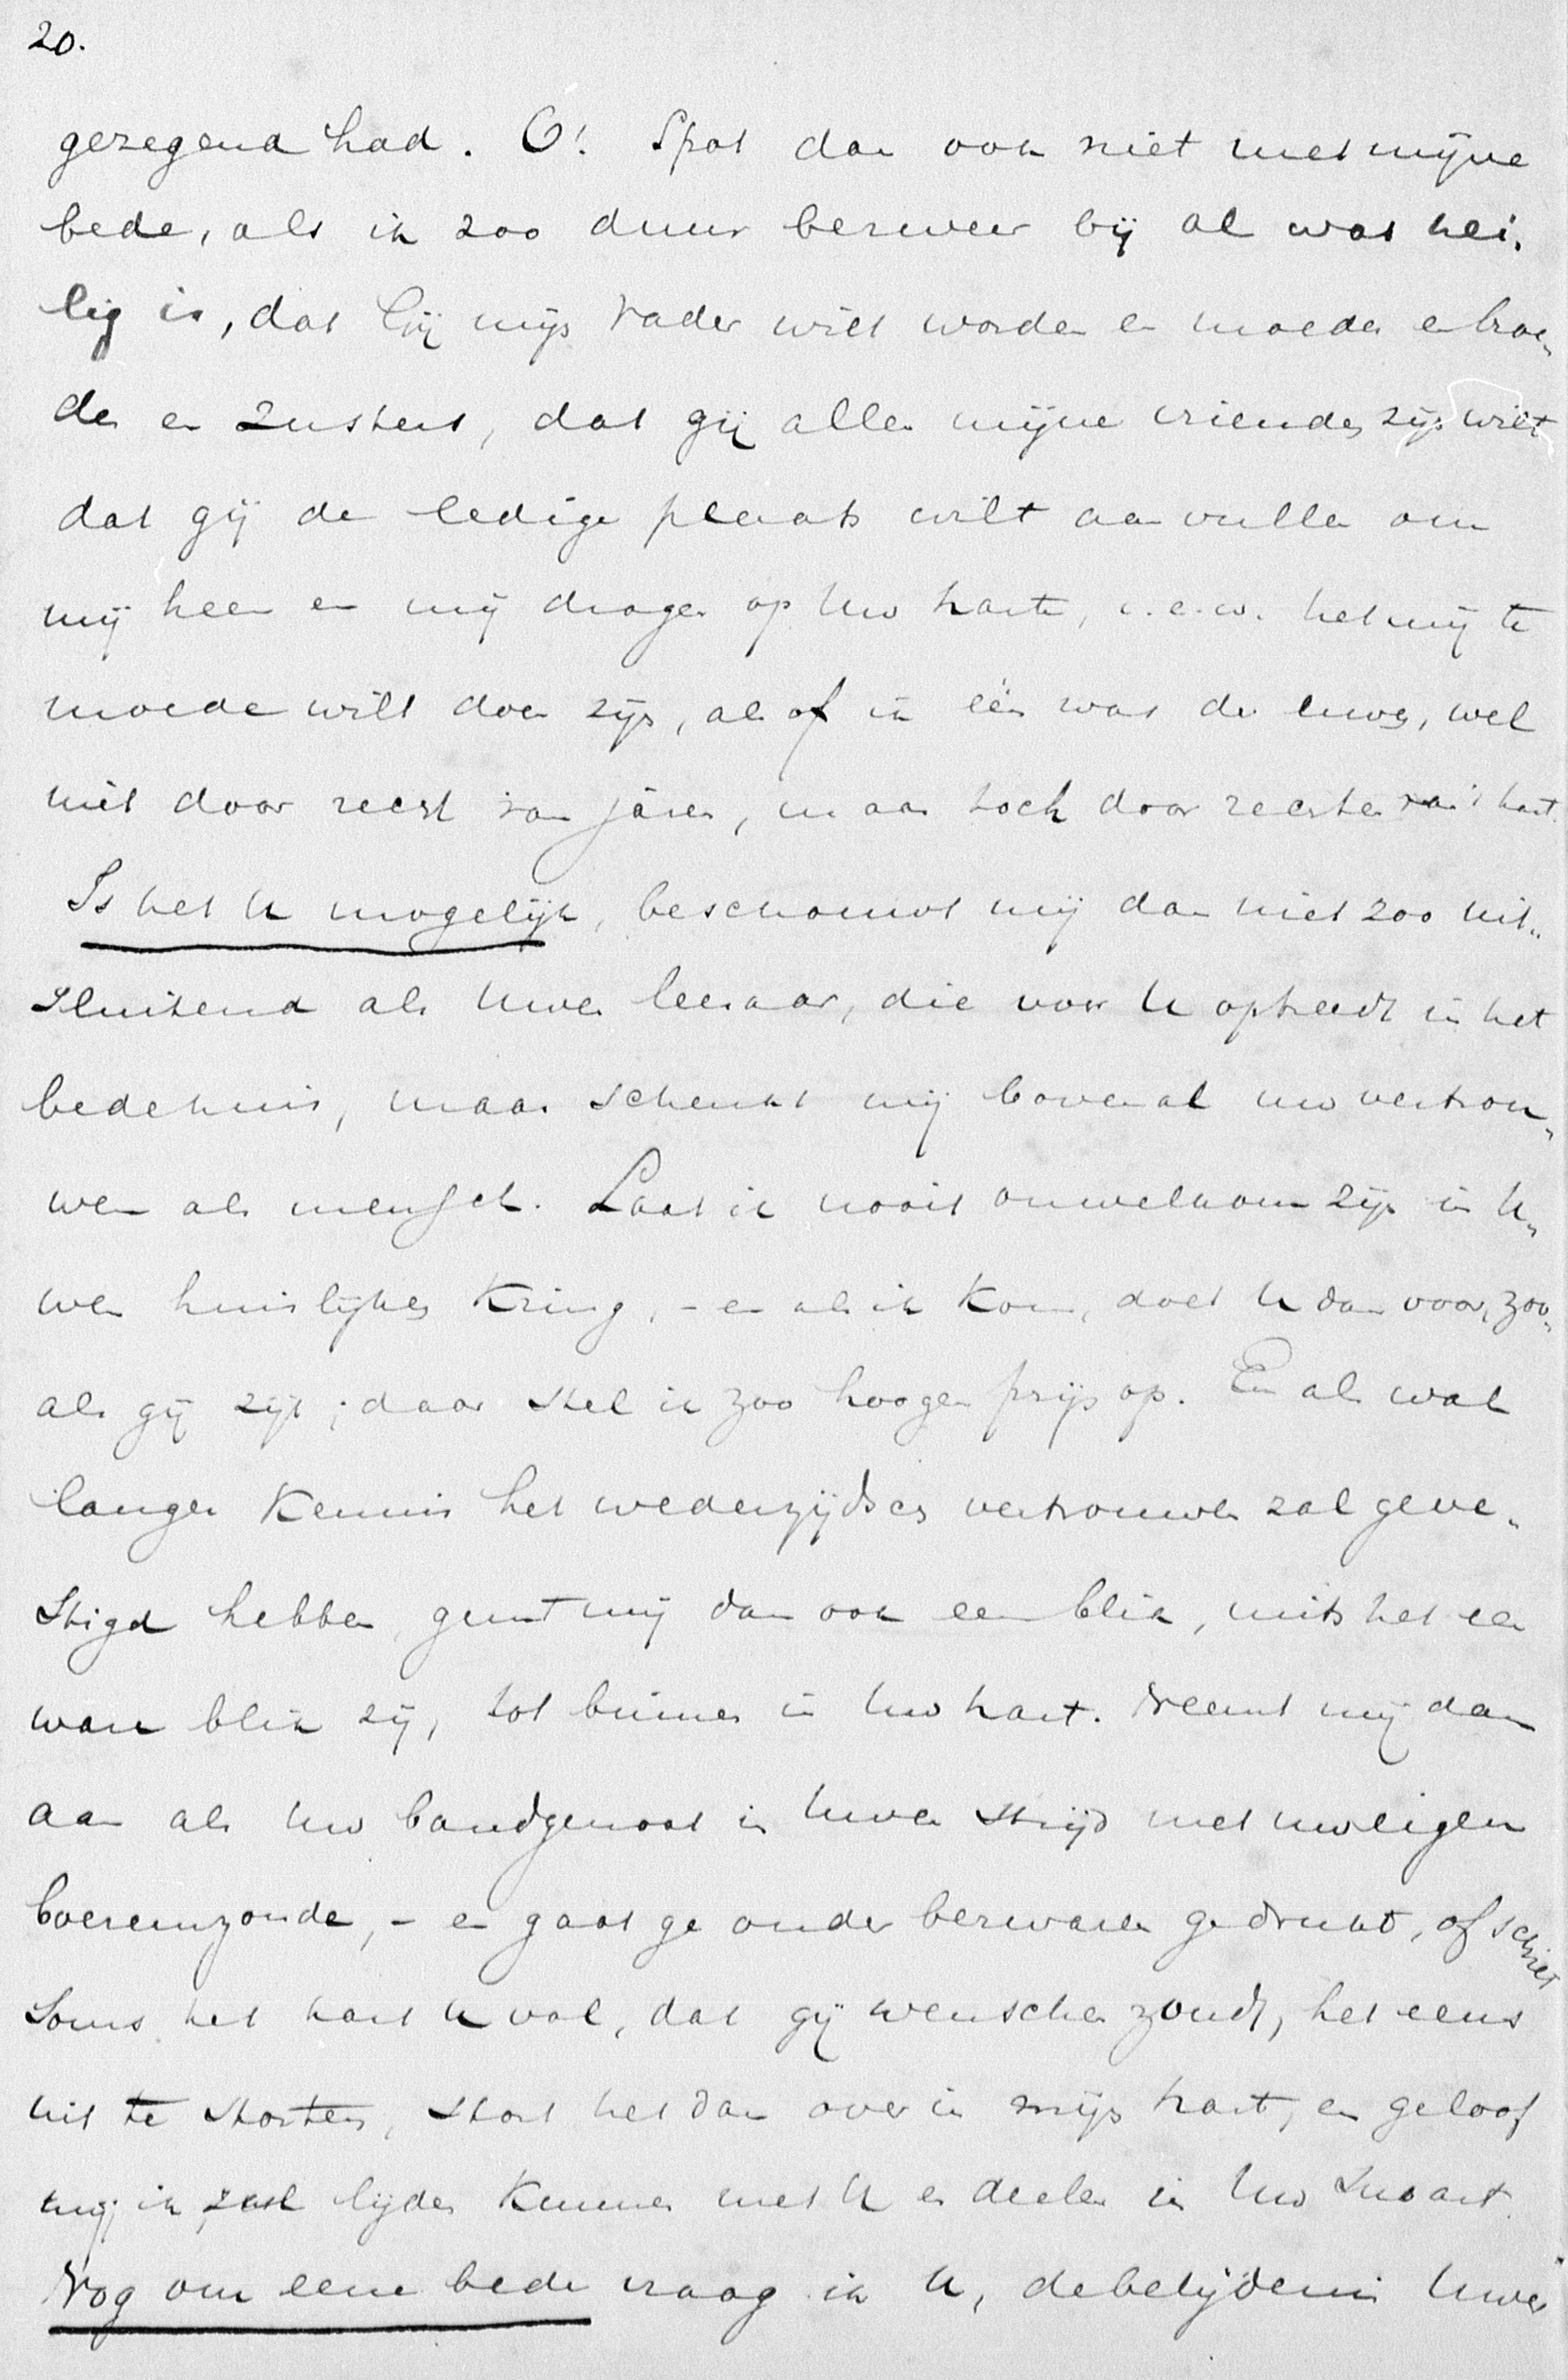 20.
gezegend had. O! Spot dan ook niet met mijne
bede, als ik zoo duur bezweer bij al wat hei„
lig is, dat Gij mijn vader wilt worden en moeder en broe„
der en zusters, dat gij allen mijne vrienden zijn wilt
dat gij de ledige plaats wilt aanvullen om
mij heen en mij dragen op Uw harte, i.e.w. het mij te
moede wilt doen zijn, als of ik één was der uwen, wel
niet door recht van jaren, maar toch door rechten van 't hart.
Is het U mogelijk, beschouwt mij dan niet zoo uit„
sluitend als Uwen leeraar, die voor U optreedt in het
bedehuis, maar schenkt mij bovenal uw vertrou„
wen als mensch. Laat ik nooit onwelkom zijn in U„
wen huislijken kring, - en als ik kom, doet U dan voor, zoo„
als gij zijt; daar stel ik zoo hoogen prijs op. En als wat
langer kennis het wederzijdsch vertrouwen zal geve„
stigd hebben, gunt mij dan ook een blik, mits het een
ware blik zij, tot binnen in Uw hart. Neemt mij dan
aan als Uw bondgenoot in Uwen strijd met uw eigen
boezemzonde, - en gaat ge onder bezwaren gedrukt, of schiet
soms het hart U vol, dat gij wenschen zoudt, het eens
uit te storten, stort het dan over in mijn hart, en geloof
mij ik zal lijden kunnen met U en deelen in Uw smart.
Nog om eene bede vraag ik U, de belijdenis Uwer